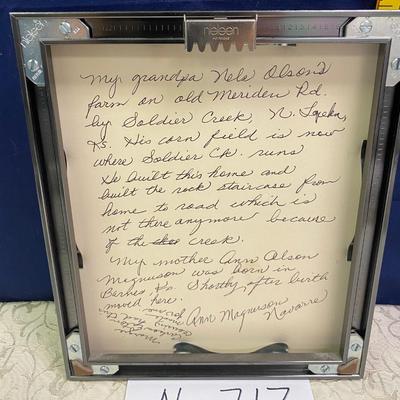 nelson
My grandpa Nels Olson's
farm on old Meriden Rd.
by Soldier Creek, N. Topeka,
Ks. His corn field is now
where Soldier Ck. runs
He built this home and
built the rock staircase from
home to road which is
not there anymore because
of the creek.
My mother Ann Olson
Magnuson was born in
Barnes, Ks. Shortly after birth
moved here.
Ann Magnuson
Navarre
had this
made
for me
N 717